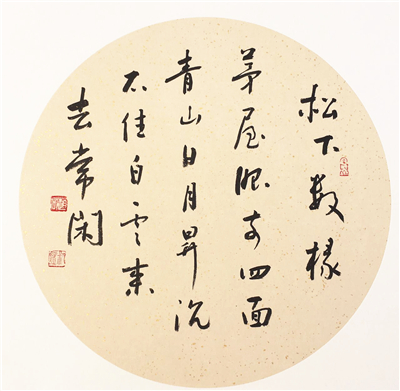 松下数椽
茅屋眼前四面
青山日月昇沉
不住白云来
去常闲